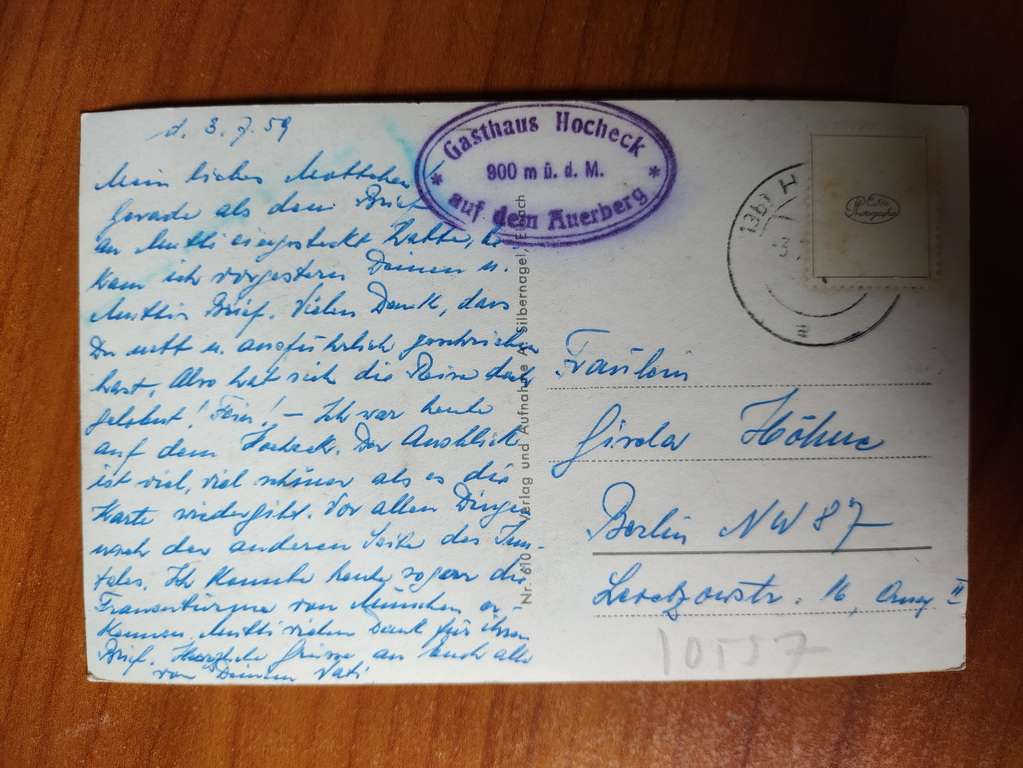 d. 3.7.59
Mein liebes Mottchen
Gerade als den Brief
an Mutti eingesteckt hatte, be-
kam ich vorgestern Deinen u.
Muttis Brief. Vielen Dank, dass
Du nett u. ausführlich geschrieben
hast. Also hat sich die Reise doch
gelohnt! Fein! — Ich war heute
auf dem Hocheck. Der Ausblick
ist viel, viel schöner als es die
Karte wiedergibt. Vor allen Dingen
nach der anderen Seite des Inn-
tales. Ich konnte heute sogar die
Frauentürme von München er-
kennen. Mutti vielen Dank für ihren
Brief. Herzliche Grüsse an Euch alle
von Deinem Vati
Gasthaus Hocheck
900 m ü. d. M.
auf dem Auerberg
Nr. 610 Verlag und Aufnahme A. Silbernagel,
(13b) H
Photographie
Fräulein
Gisela Höhne
Berlin NW 87
Levetzowstr. 16, II
10557